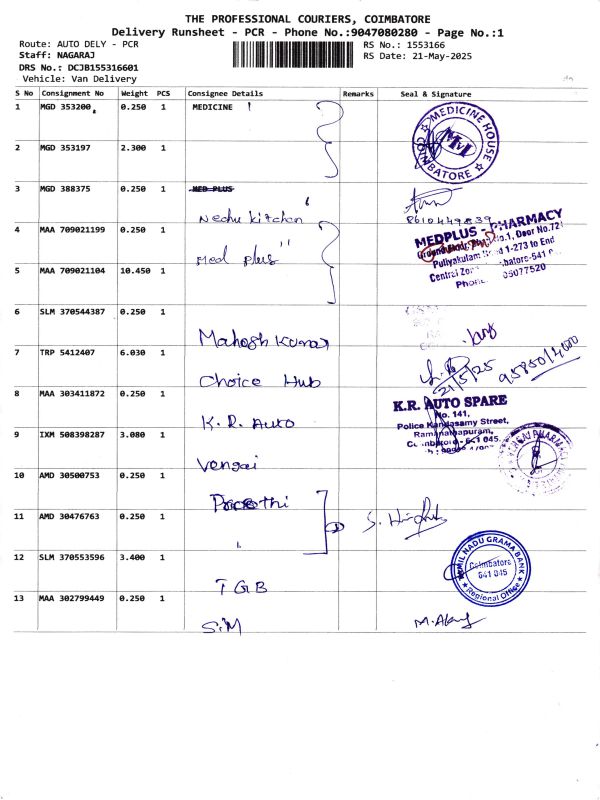 THE PROFESSIONAL COURIERS, COIMBATORE
Delivery Runsheet - PCR - Phone No.:9047080280 - Page No.:1
Route: AUTO DELY - PCR
RS No.: 1553166
Staff: NAGARAJ
RS Date: 21-May-2025
DRS No.: DCJB155316601
Vehicle: Van Delivery
S No Consignment No Weight PCS Consignee Details Remarks Seal & Signature
1 MGD 353200 0.250 1 MEDICINE
MEDICINE HOUSE
COIMBATORE
2 MGD 353197 2.300 1
3 MGD 388375 0.250 1 MED PLUS
Nechu Kitchen
8610449839
4 MAA 709021199 0.250 1
Med plus "
MEDPLUS - PHARMACY
No.1, Door No.72
Puliyakulam 1-273 to End
Central
Phone 05077520
5 MAA 709021104 10.450 1
6 SLM 370544387 0.250 1
Mahesh Kumar
7 TRP 5412407 6.030 1
Choice Hub
21/5/25
8 MAA 303411872 0.250 1
K.R. Auto
K.R. AUTO SPARE
No. 141,
Police Kandasamy Street,
Ramanathapuram,
9 IXM 508398287 3.080 1
Vengai
10 AMD 30500753 0.250 1
Preethi
11 AMD 30476763 0.250 1
12 SLM 370553596 3.400 1
TGB
TAMIL NADU GRAMA BANK
Coimbatore
641 045
Regional Office
13 MAA 302799449 0.250 1
SIM